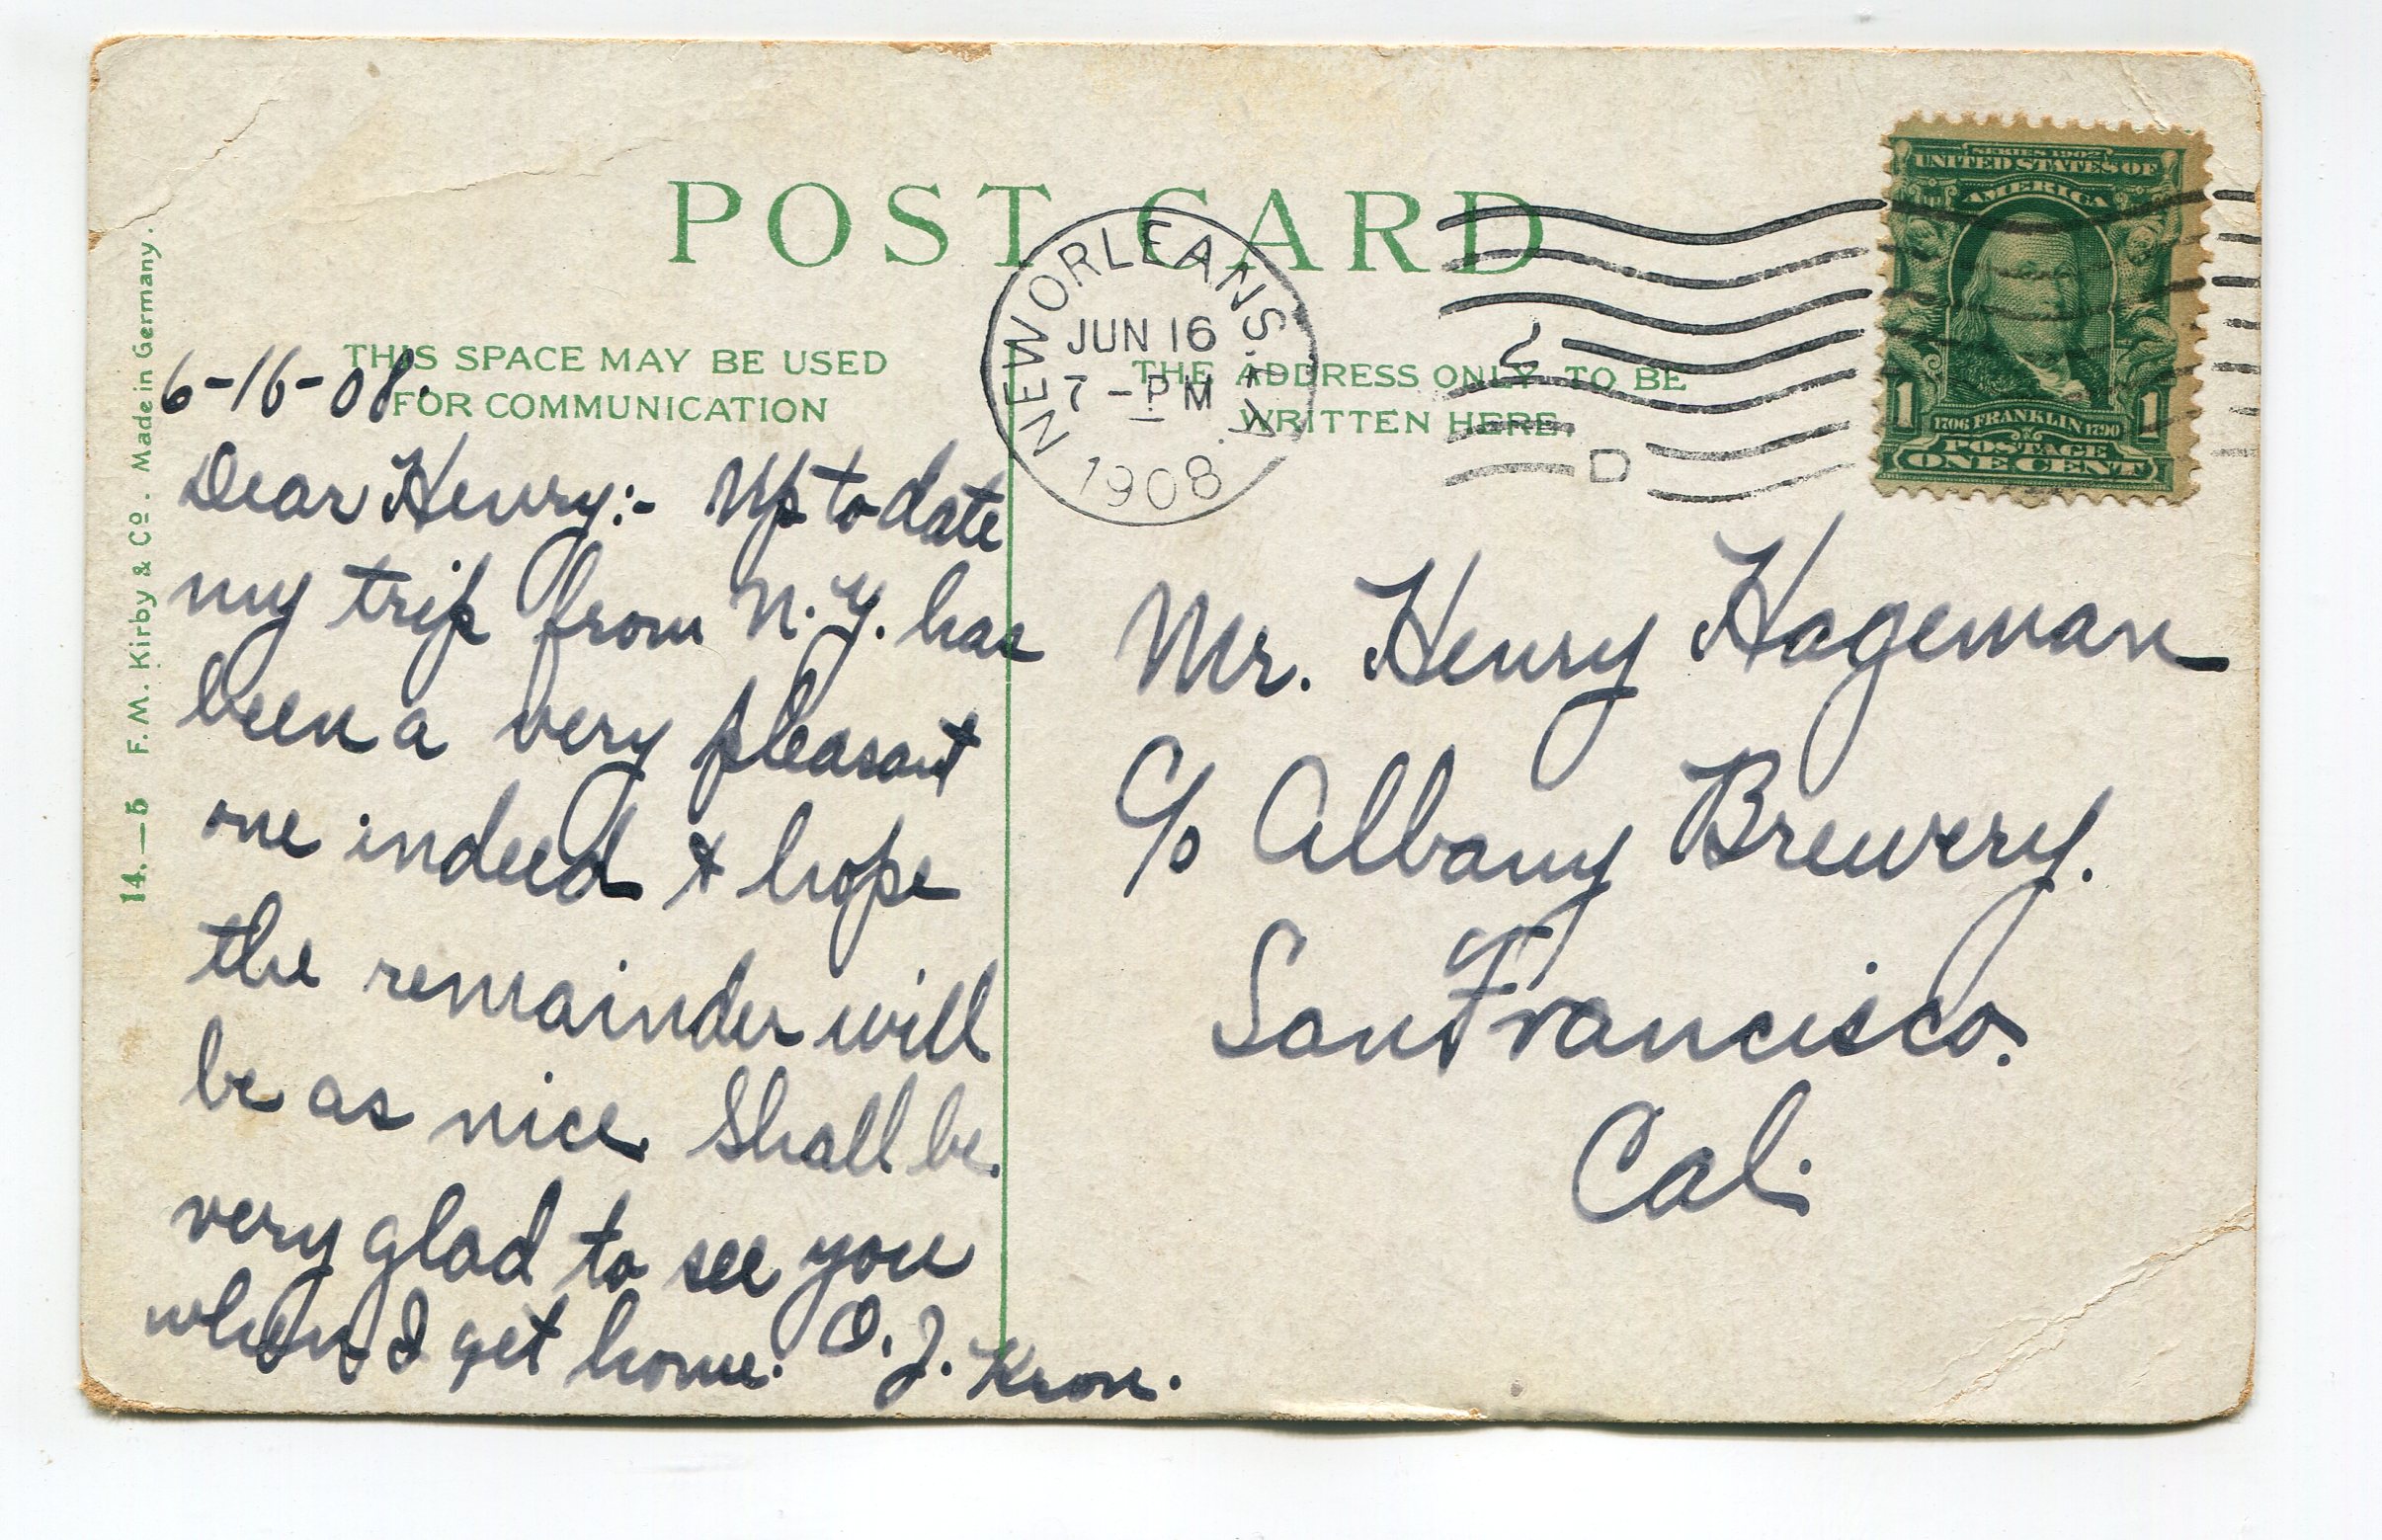 POST CARD
THIS SPACE MAY BE USED
FOR COMMUNICATION
THE ADDRESS ONLY TO BE
WRITTEN HERE.
14.—5 F. M. Kirby & Co. Made in Germany.
NEW ORLEANS, LA.
JUN 16
7 - PM
1908
D
SERIES 1902
UNITED STATES OF
AMERICA
1 1706 FRANKLIN 1790 1
POSTAGE
ONE CENT
6-16-08.
Dear Henry:- Up to date
my trip from N.Y. has
been a very pleasant
one indeed & hope
the remainder will
be as nice Shall be
very glad to see you
when I get home. O. J. Kron.
Mr. Henry Hageman
c/o Albany Brewery.
San Francisco.
Cal.